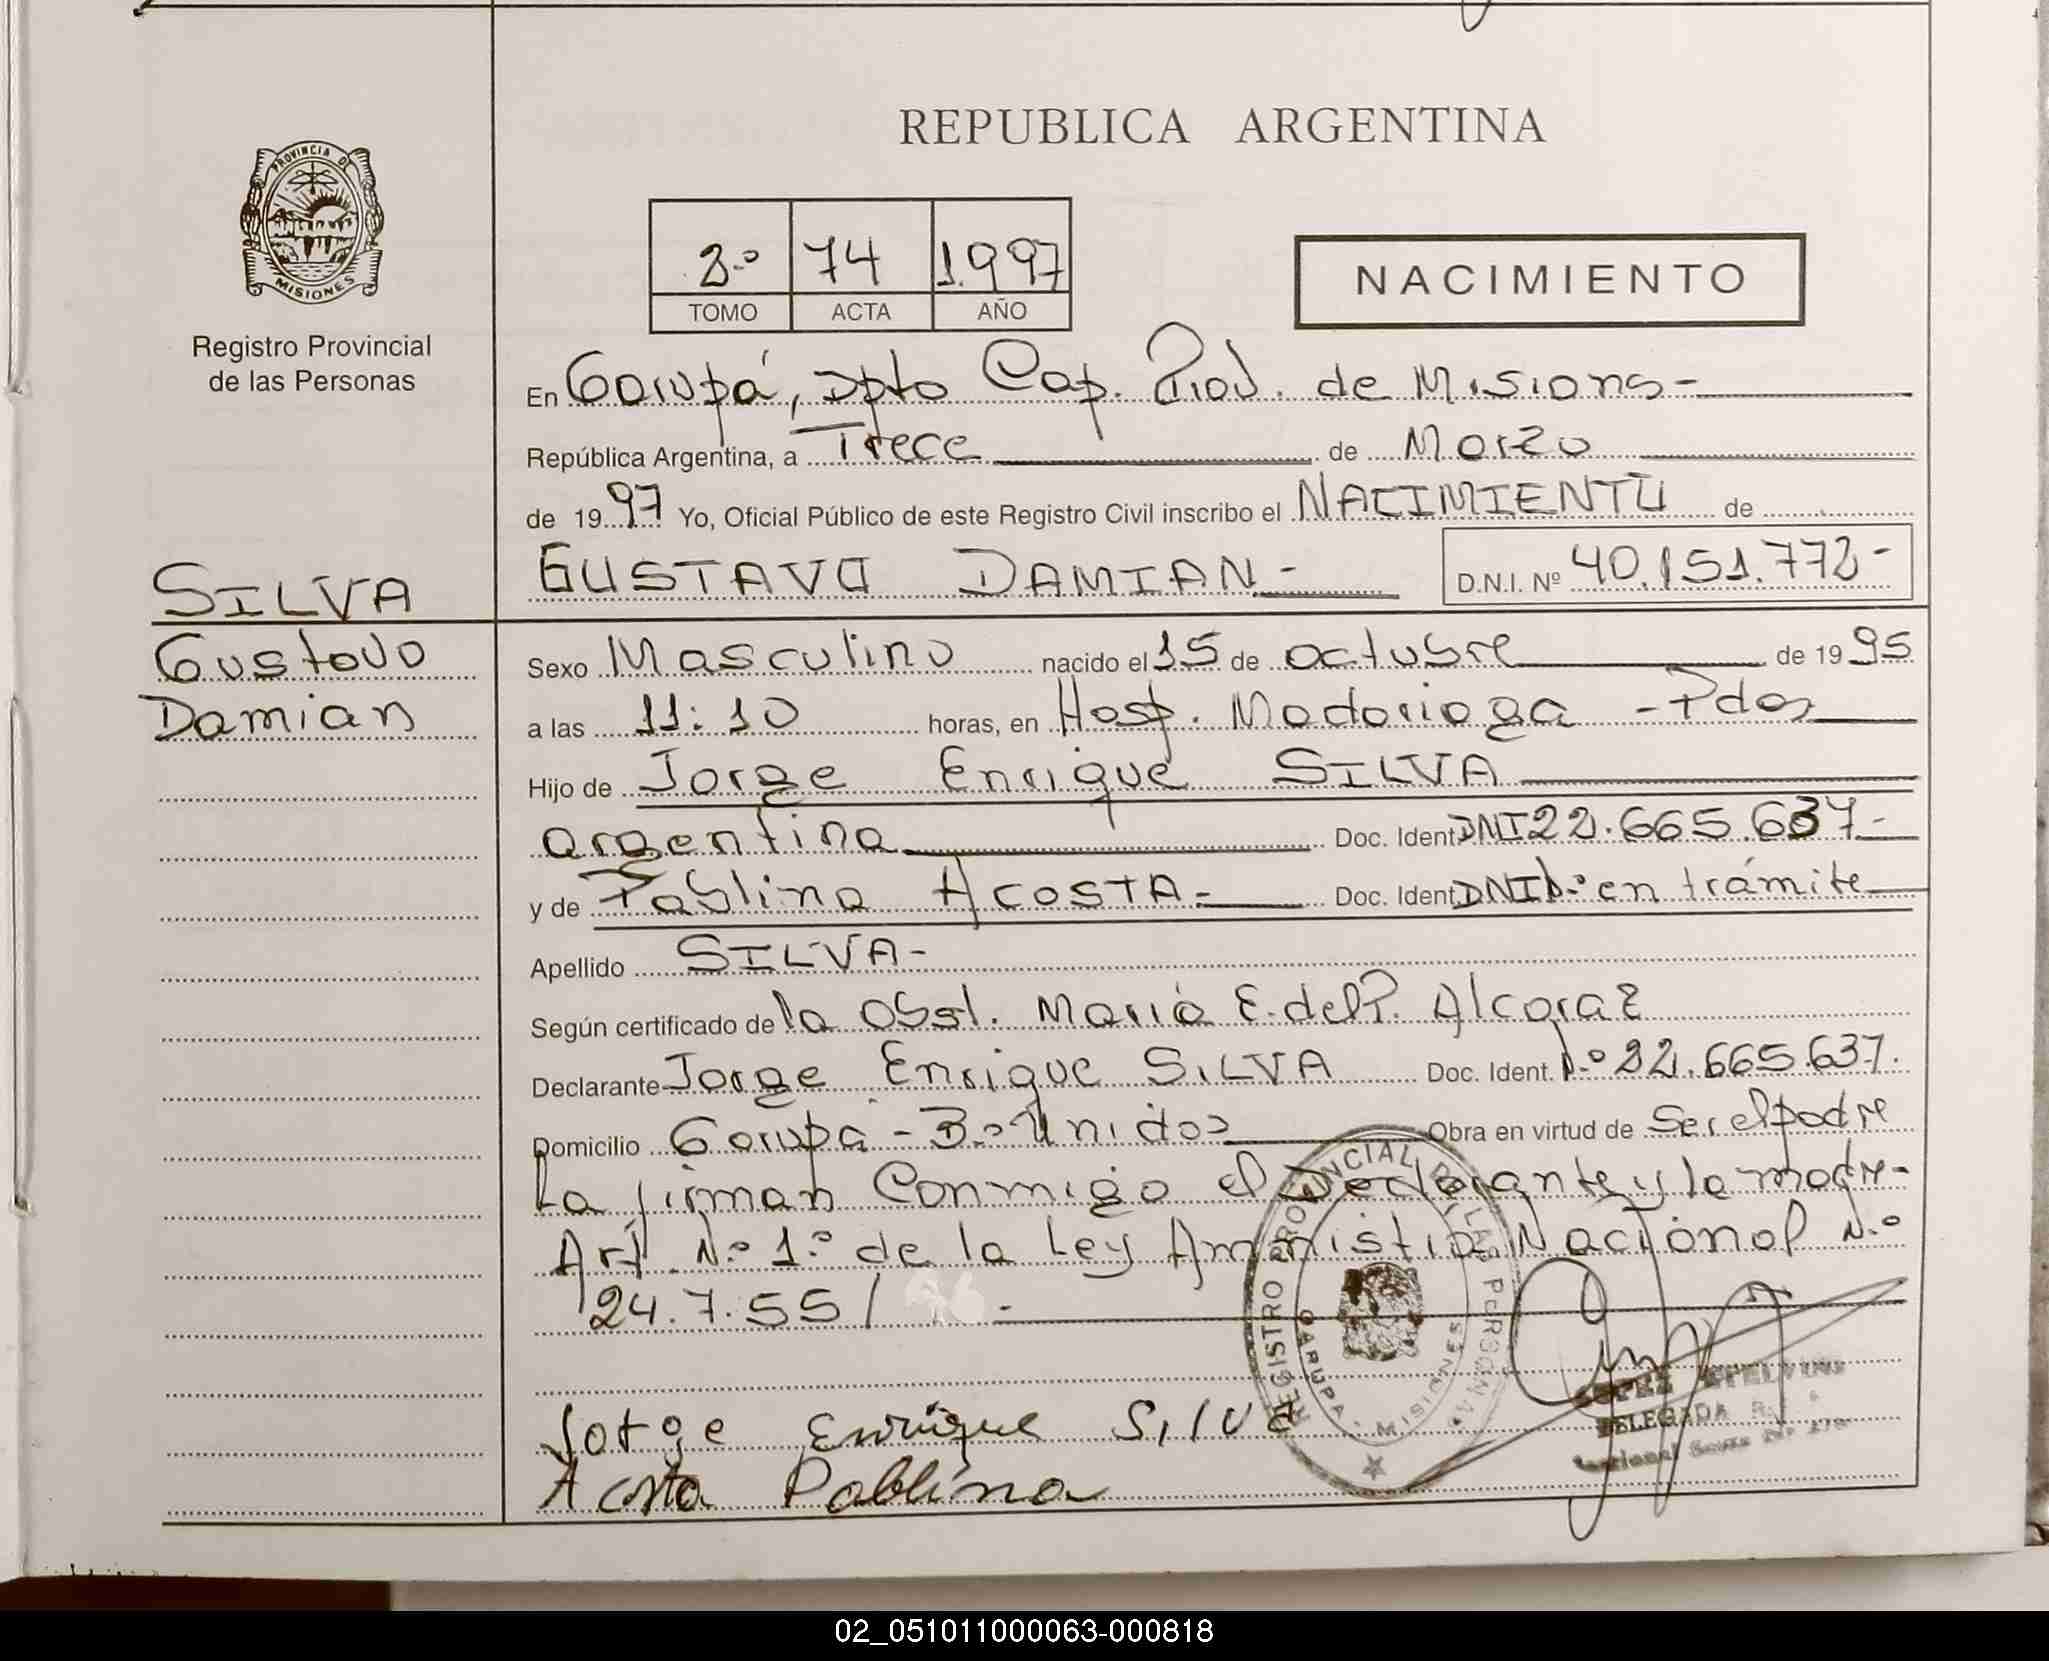 REPUBLICA ARGENTINA
PROVINCIA DE
MISIONES
Registro Provincial
de las Personas
2.º 74 1.997
TOMO ACTA AÑO
NACIMIENTO
En Garupá, Dpto Cap. Prov. de Misions-
República Argentina, a Trece de Marzo
de 1997 Yo, Oficial Público de este Registro Civil inscribo el NACIMIENTO de
SILVA
GUSTAVO DAMIAN.-
D.N.I. Nº 40.151.772-
Gustavo
Damian
Sexo Masculino nacido el 15 de octubre de 1995
a las 11:10 horas, en Hosp. Madariaga -Pdas
Hijo de Jorge Enrique SILVA
argentina Doc. Ident. DNI 22.665.637-
y de Pablina ACOSTA- Doc. Ident. DNI Nº en trámite
Apellido SILVA-
Según certificado de la Obst. María E. del P. Alcaraz
Declarante Jorge Enrique SILVA Doc. Ident. Nº 22.665.637.
Domicilio Garupá - Bº Unidos Obra en virtud de Ser el padre
La firman Conmigo el Declarante y la madre-
Art. Nº 1º de la Ley Amnistia Nacional N.º
24.7.55/ 96.-
REGISTRO PROVINCIAL DE LAS PERSONAS
GARUPA - MISIONES
Jorge Enrique Silva
Acosta Pablina
DELEGADA
02_051011000063-000818